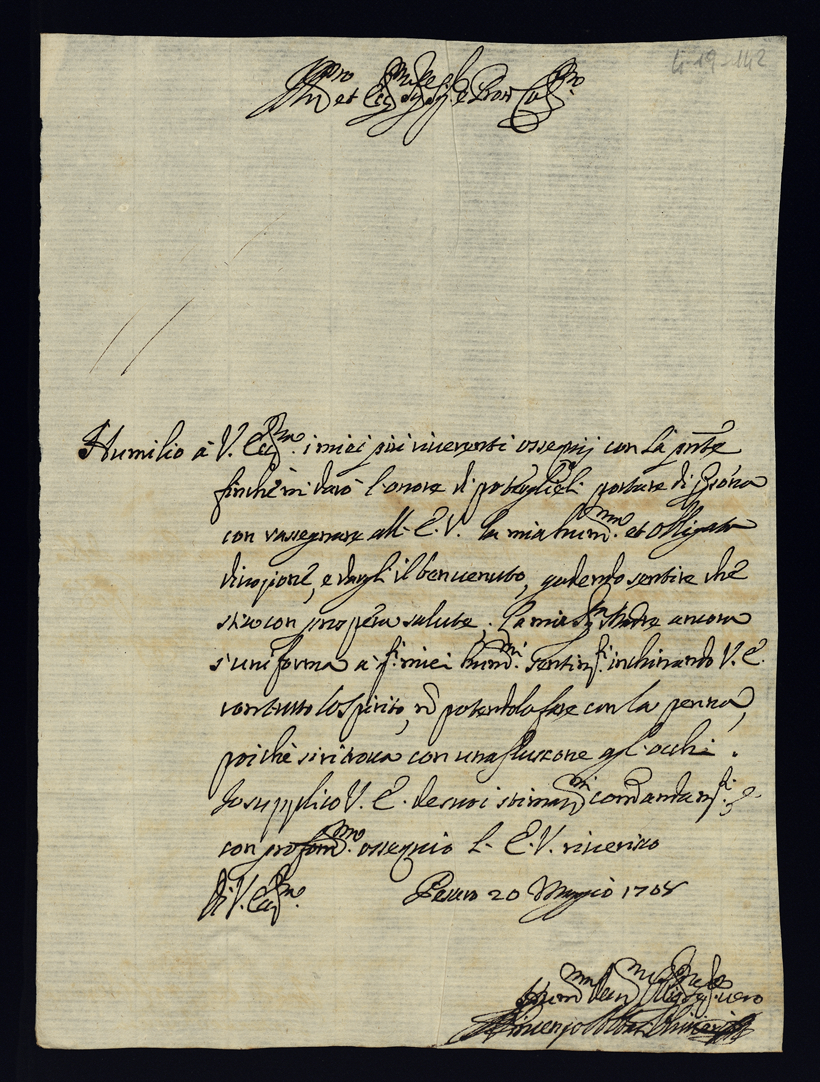 4-19-142
Ill.mo et Ecc.mo Sig.
Humilio à V. Ecc.za i miei più riverenti ossequij con la pnte
finche mi darà l'onore di poterglieli portare di
con rassegnare all' E. V. la mia hum.ma et obligata
divozione, e dargli il benvenuto, godendo sentire che
stia con prospera salute; la mia Sig.ra Madre ancora
s'uniforma a i miei hum.mi sentim.ti inchinando V. E.
con tutto lo spirito, nõ potendolo fare con la penna,
poiche si ritrova con una flussione agl'occhi.
Io supplico V. E. de suoi stimat.mi comandam.ti, e
con profond.mo ossequio L. E. V. riverisco
Di V. Ecc.za Pesaro 20 Maggio 1708
Hum.mo Dev.mo Oblig.mo Ser.re vero
Vincenzo